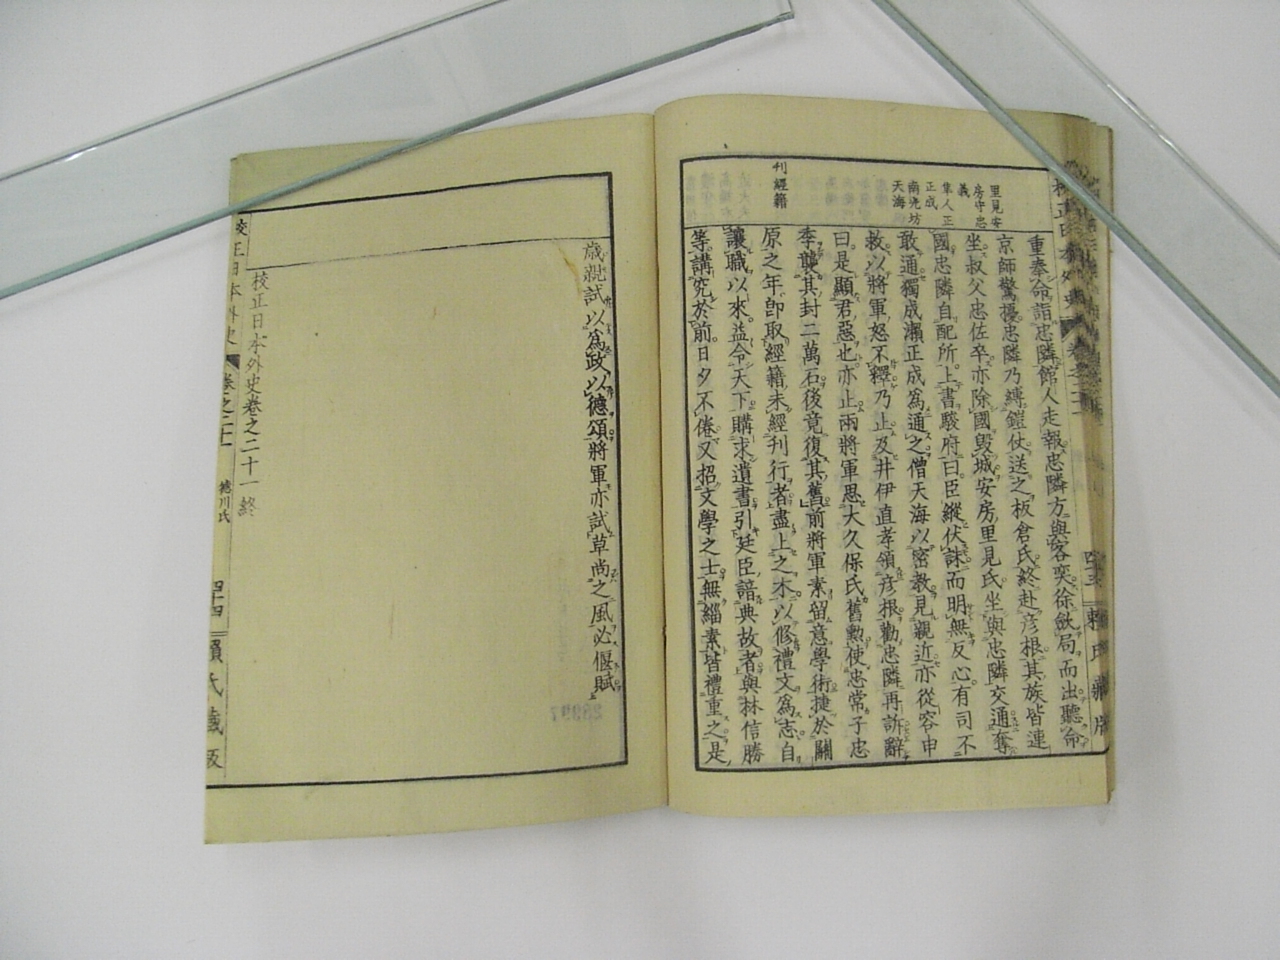 里見安
房守忠
義
隼人正
正成
南光坊
天海
刊經籍
重奉命詣忠隣館人走報忠隣方與客奕徐斂局而出聽命
京師驚擾忠隣乃縛鎧仗送之板倉氏終赴彦根其族皆連
坐叔父忠佐卒亦除國毀城安房里見氏坐與忠隣交通奪
國忠隣自配所上書駿府曰臣縱伏誅而明無反心有司不
敢通獨成瀬正成爲通之僧天海以密教見親近亦從容申
救以將軍怒不釋乃止及井伊直孝領彦根勸忠隣再訴辭
曰是顯君惡也亦止兩將軍思大久保氏舊勲使忠常子忠
季襲其封二萬石後竟復其舊前將軍素留意學術捷於關
原之年卽取經籍未經刊行者盡上之木以修禮文爲志自
讓職以來益令天下購求遺書引廷臣諳典故者與林信勝
等講究於前日夕不倦又招文學之士無緇素皆禮重之是
歳親試以爲政以德頌將軍亦試草尚之風必偃賦
校正日本外史卷之二十一終
校正日本外史
卷之二十一
德川氏
四十四
頼氏藏版